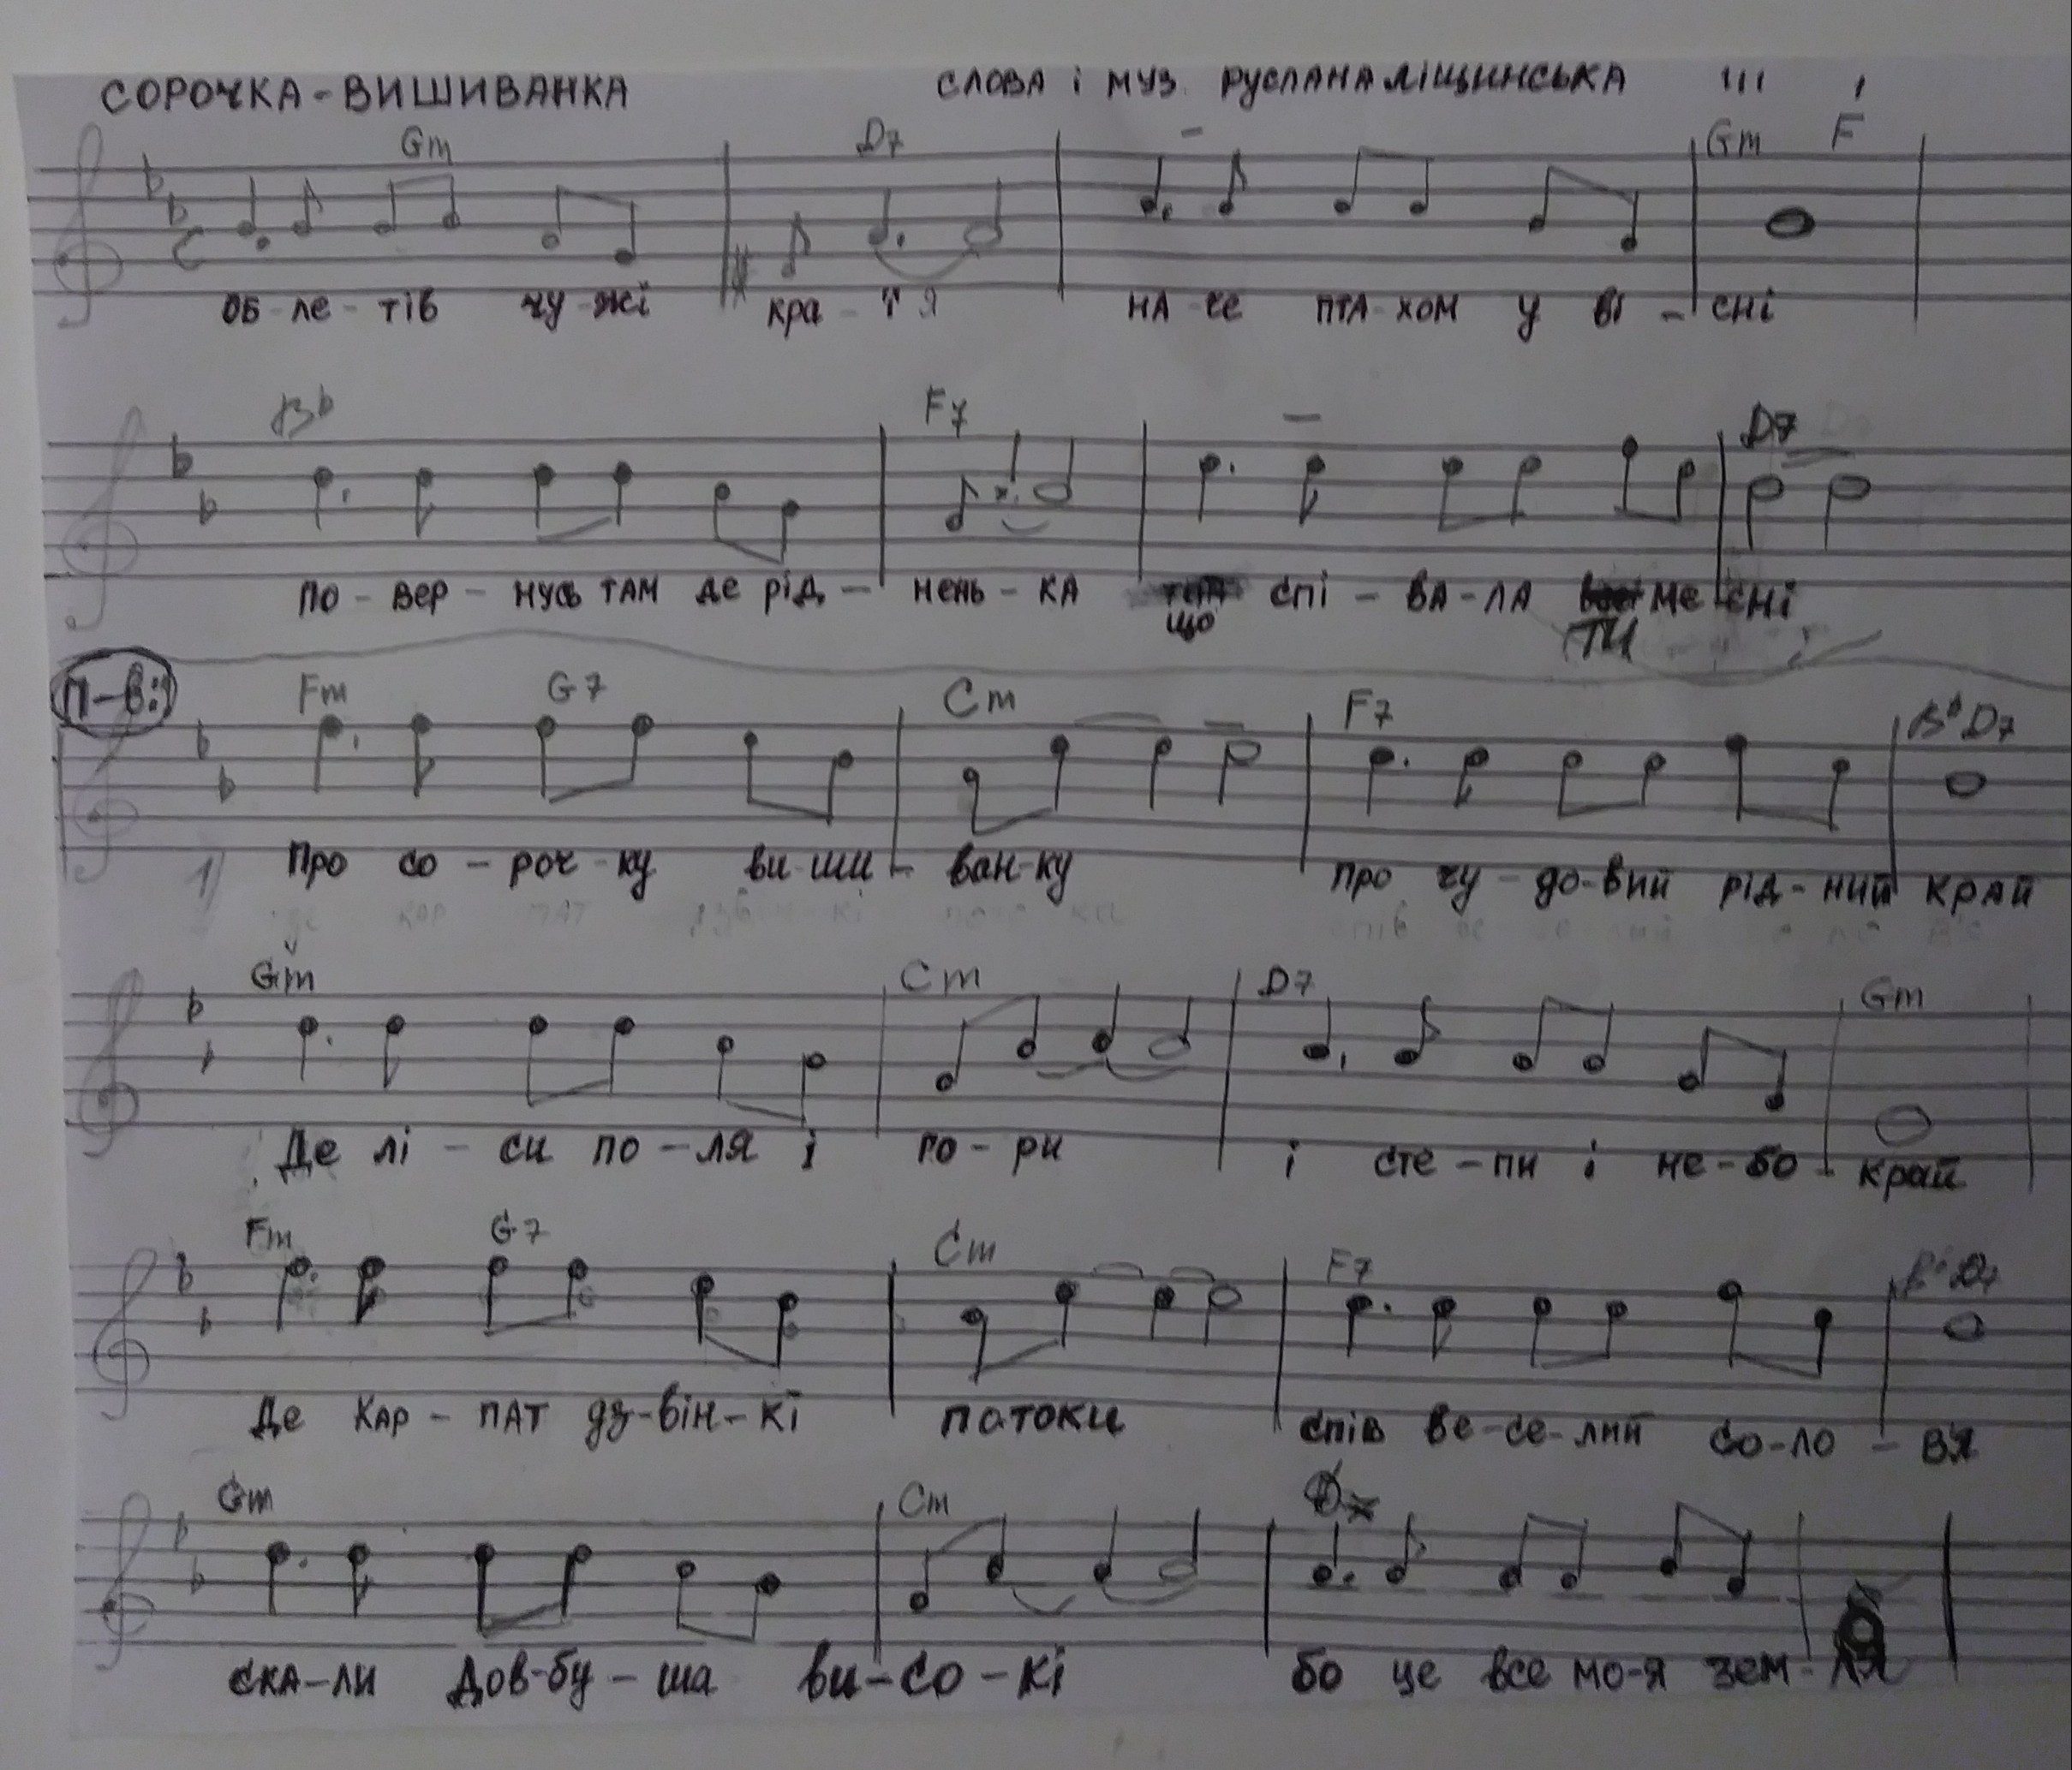 СОРОЧКА-ВИШИВАНКА СЛОВА І МУЗ. РУСЛАНА ЛІЩИНСЬКА
Gm D7 Gm F
ОБ-ЛЕ-ТІВ ЧУ-ЖІ КРА-Ї Я НА-ЧЕ ПТА-ХОМ У ВІ-СНІ
Bb F7 D7
ПО-ВЕР-НУСЬ ТАМ ДЕ РІД-НЕНЬ-КА СПІ-ВА-ЛА МЕ СНІ
ЩО ТИ
П-В:
Fm G7 Cm F7 Bb D7
1) ПРО СО-РОЧ-КУ ВИ-ШИ-ВАН-КУ ПРО ЧУ-ДО-ВИЙ РІД-НИЙ КРАЙ
Gm Cm D7 Gm
ДЕ ЛІ-СИ ПО-ЛЯ І ГО-РИ І СТЕ-ПИ І НЕ-БО-КРАЙ
Fm G7 Cm F7
ДЕ КАР-ПАТ ДЗ-ВІН-КІ ПОТОКИ СПІВ ВЕ-СЕ-ЛИЙ СО-ЛО-В'Я
Gm Cm
СКА-ЛИ ДОВ-БУ-ША ВИ-СО-КІ БО ЦЕ ВСЕ МО-Я ЗЕМ-ЛЯ